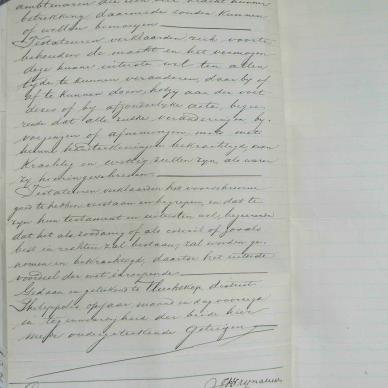 ambtenaren die een
betrekking daarmede zouden kunnen
of willen bemoeijen
Testateuren verklaarden zich voorts
behouden de macht en het vermogen
deze hunne uiterste wil ten allen
tyde te kunnen veranderen, daarby of
af te kunnen doen, hetzy aan den voet
dezes of by afzonderlyke acte, begee-
rende dat alle zulke veranderingen, by-
voegingen of afnemingen mits met
hunne handteekeningen bekrachtigd, van
kracht en zullen zyn, als waren
zy hierin geschreven
Testateuren verklaarden het voorschreven
goed te hebben verstaan en begrepen, en dat te
zyn hun testament en uiterste wil, begeerende
dat het als zoodanig of als codicil of zooals
best in rechten zal bestaan, zal worden ge-
nomen en bekrachtigd, daartoe het uiterste
voordeel der wet inroepende
Gedaan en geteekend te district
Philippolis, op jaar, maand en dag voorzegd
en in tegenwoordigheid der beide hier
ondergeteekende getuigen